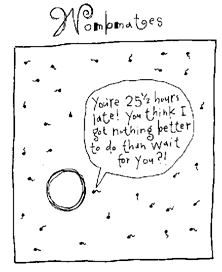 Wombmates
You're 25½ hours
late! You think I
got nothing better
to do than wait
for you?!